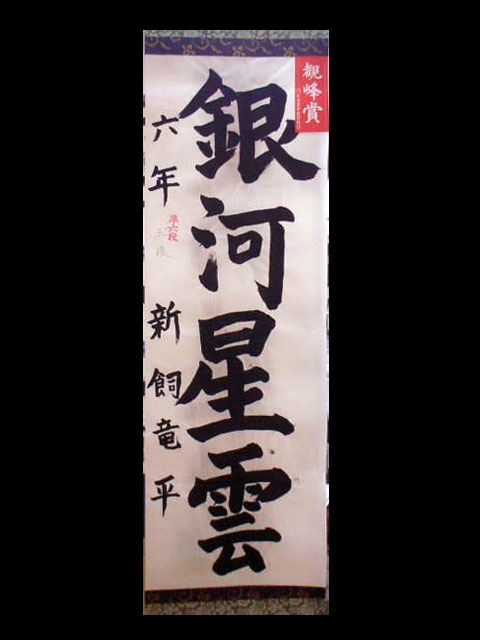 観峰賞
銀河星雲
六年 新飼竜平
準六段
三段